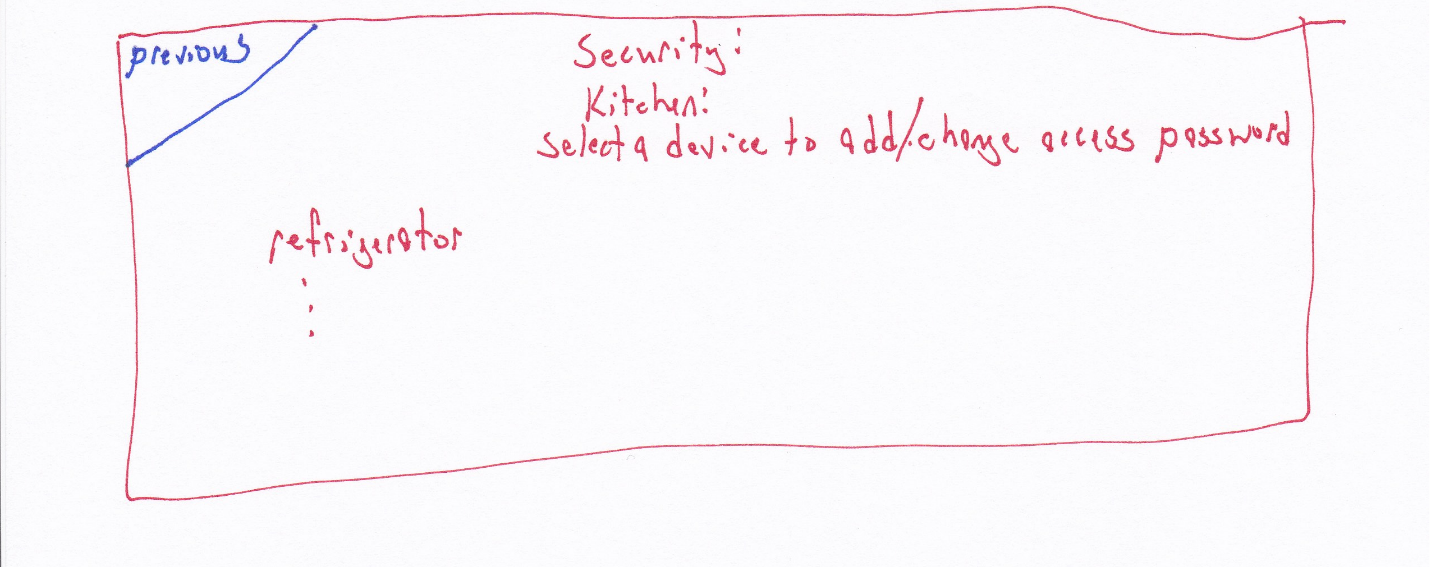 previous
Security:
Kitchen:
Select a device to add/change access password
refrigerator
⋮